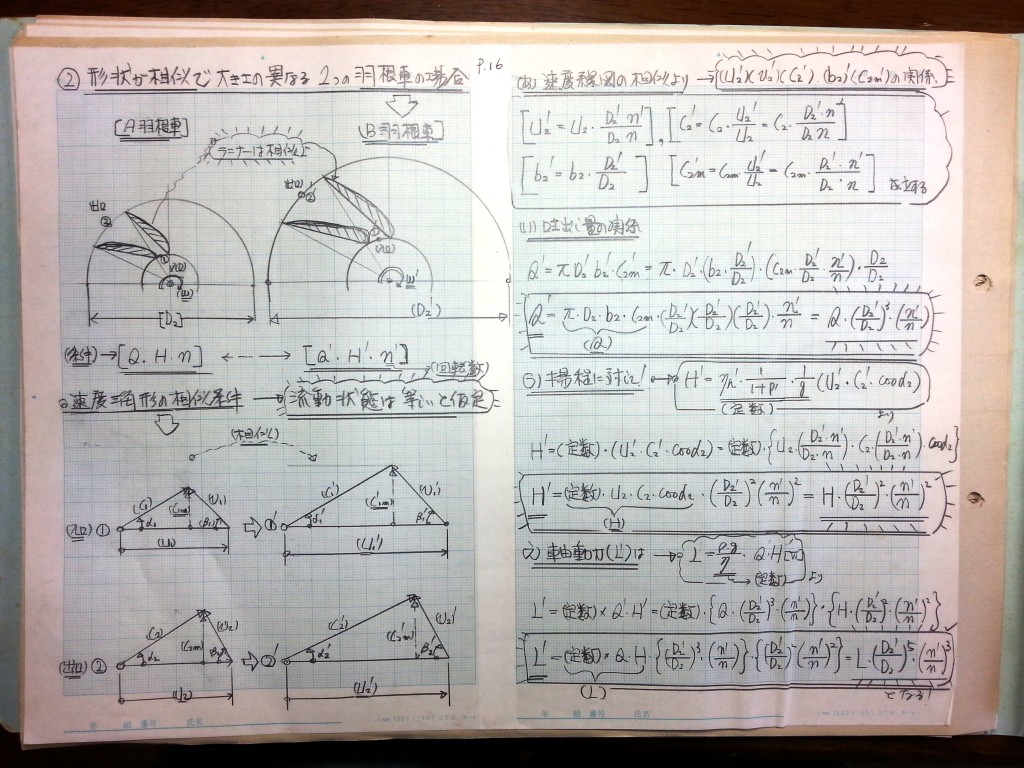 P.16
② 形状が相似で大きさの異なる2つの羽根車の場合
[A羽根車]
[B羽根車]
ランナーは相似
出口
②
①
入口
(u)
[D₂]
出口
②'
①'
(入口)
(u')
(D₂')
(条件)→[Q・H・n] ←--→ [Q'・H'・n']
(回転数)
◦速度三角形の相似条件 → (流動状態は等しいと仮定)
(相似)
(入口)①
(C₁) (C₁m) (U₁) α₁ β₁
(U₁)
⇨ ①'
(C₁') (C₁'m) (U₁') α₁' β₁'
(U₁')
(出口)②
(C₂) (C₂m) (U₂) α₂ β₂
(U₂)
⇨ ②'
(C₂') (C₂m') (U₂') α₂' β₂'
(U₂')
年 組 番号 氏名
速度線図の相似より → (U₂')(C₂')・(b₂')(C₂m')の関係
[U₂' = U₂・D₂'n'/D₂n], [C₂' = C₂・U₂'/U₂ = C₂・D₂'・n'/D₂n]
[b₂' = b₂・D₂'/D₂] [C₂m' = C₂m・U₂'/U₂ = C₂m・D₂'・n'/D₂・n] 成立する
(1) 吐出し量の関係
Q' = π D₂' b₂' C₂m' = π・D₂'・(b₂・D₂'/D₂)・(C₂m・D₂'/D₂・n'/n)・D₂/D₂
Q' = π・D₂・b₂・C₂m・(D₂'/D₂)(D₂'/D₂)(D₂'/D₂)・n'/n = Q・(D₂'/D₂)³・(n'/n)
(Q)
揚程に対し! → H' = ηh'・1/1+p'・1/g (U₂'・C₂'・cosα₂)
(定数) より
H' = (定数)・(U₂'・C₂'・cosα₂) = (定数)・{U₂・(D₂'・n'/D₂・n)・C₂・(D₂'・n'/D₂・n)・cosα₂}
H' = (定数)・U₂・C₂・cosα₂・(D₂'/D₂)²(n'/n)² = H・(D₂'/D₂)²・(n'/n)²
(H)
軸動力(L')は → L = ρ・g/η・Q・H[W]
(定数) より
L' = (定数)×Q'・H' = (定数)・{Q・(D₂'/D₂)³・(n'/n)}・{H・(D₂'/D₂)²・(n'/n)²}
L' = (定数)×Q・H・{(D₂'/D₂)³・(n'/n)}・{(D₂'/D₂)²・(n'/n)²} = L・(D₂'/D₂)⁵・(n'/n)³
(L)
となる!
年 組 番号 氏名